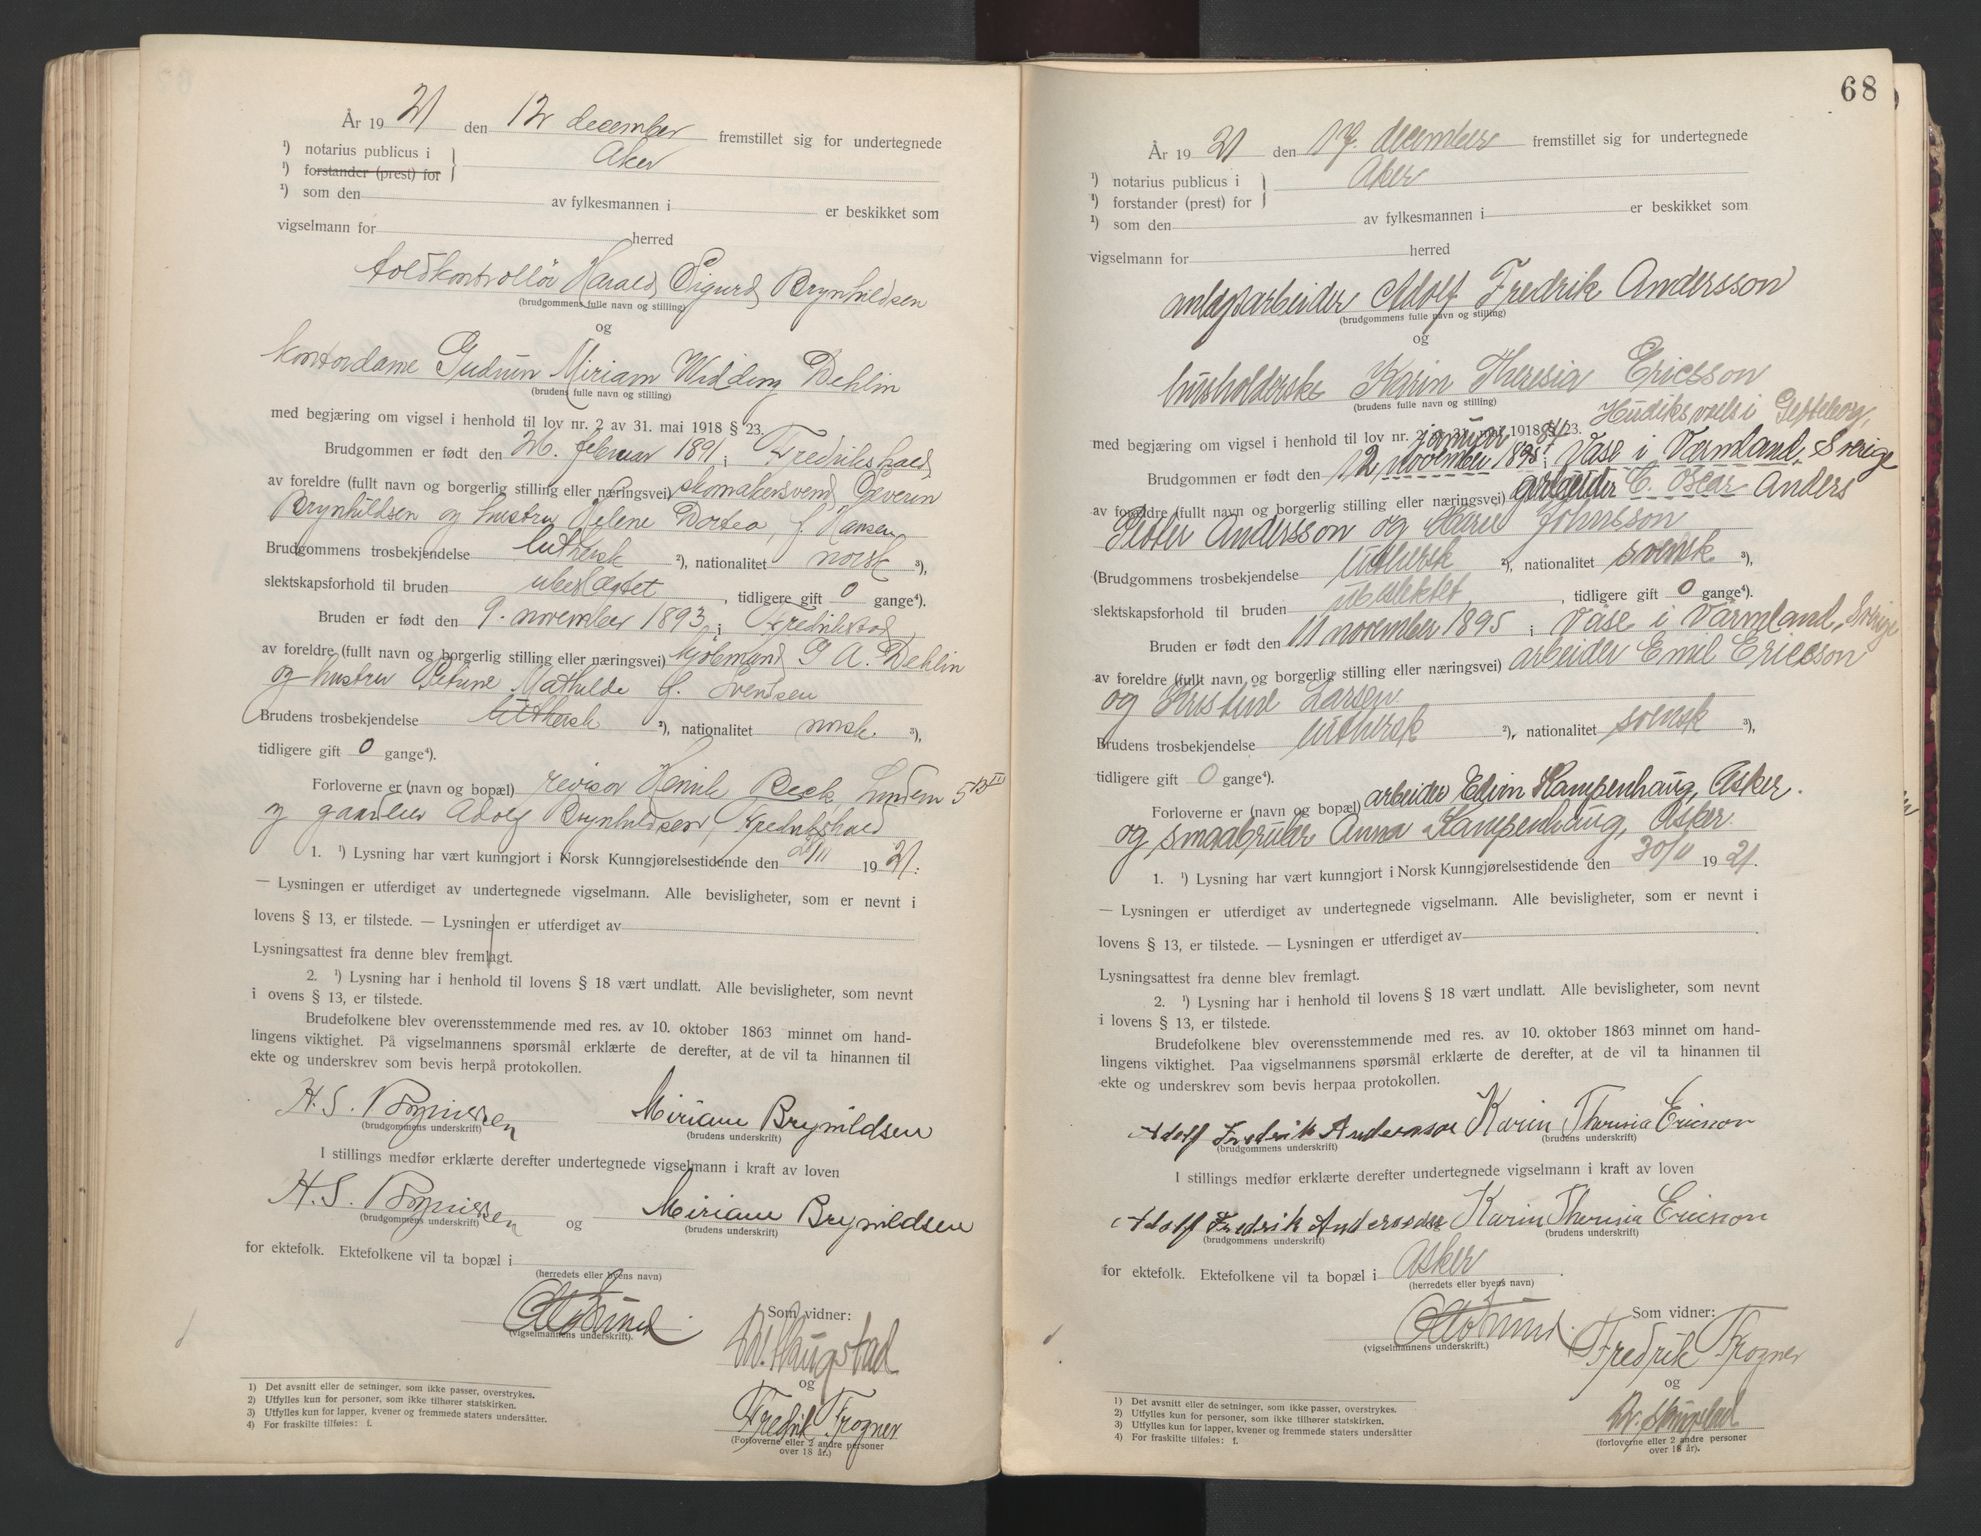 År 19 21 den 12 december fremstillet sig for undertegnede
¹) notarius publicus i Aker
¹) forstander (prest) for
¹) som den av fylkesmannen i er beskikket som
vigselmann for herred
toldkontrollör Harald Sigurd Brynhildsen
(brudgommens fulle navn og stilling)
og
kontordame Gudrun Miriam Widding Dehlin
(brudens fulle navn og stilling)
med begjæring om vigsel i henhold til lov nr. 2 av 31. mai 1918 § 23.
Brudgommen er født den 26. februar 1891 i Fredrikshald
av foreldre (fullt navn og borgerlig stilling eller næringsvei) skomakersvend Severin
Brynhildsen og hustru Helene Dortea, f. Hansen
Brudgommens trosbekjendelse luthersk ²), nationalitet norsk ³),
slektskapsforhold til bruden ubeslegtet, tidligere gift 0 gange⁴).
Bruden er født den 9. november 1893 i Fredrikstad
av foreldre (fullt navn og borgerlig stilling eller næringsvei) G A. Dehlin
og hustru Petrine Mathilde f. Svendsen
Brudens trosbekjendelse luthersk ²), nationalitet norsk ³),
tidligere gift 0 gange⁴).
Forloverne er (navn og bopæl) revisor Henrik Beck
og Adolf Brynhildsen, Fredrikshald
1. ¹) Lysning har vært kunngjort i Norsk Kunngjørelsestidende den /11 19 21.
— Lysningen er utferdiget av undertegnede vigselmann. Alle bevisligheter, som er nevnt i
lovens § 13, er tilstede. — Lysningen er utferdiget av
Lysningsattest fra denne blev fremlagt.
2. ¹) Lysning har i henhold til lovens § 18 vært undlatt. Alle bevisligheter, som nevnt
i ovens § 13, er tilstede.
Brudefolkene blev overensstemmende med res. av 10. oktober 1863 minnet om hand-
lingens viktighet. På vigselmannens spørsmål erklærte de derefter, at de vil ta hinannen til
ekte og underskrev som bevis herpå protokollen.
H. S. Brynildsen Miriam Brynildsen
(brudgommens underskrift) (brudens underskrift)
I stillings medfør erklærte derefter undertegnede vigselmann i kraft av loven
H. S. Brynildsen og Miriam Brynildsen
(brudgommens underskrift) (brudens underskrift)
for ektefolk. Ektefolkene vil ta bopæl i
(herredets eller byens navn)
Som vidner:
(vigselmannens underskrift).
Haugstad
og
Fredrik Frogner
(Forloverne eller 2 andre personer
over 18 år.)
1) Det avsnitt eller de setninger, som ikke passer, overstrykes.
2) Utfylles kun for personer, som ikke tilhører statskirken.
3) Utfylles kun for lapper, kvener og fremmede staters undersåtter.
4) For fraskilte tilføies: f.
68
År 19 21 den 17. december fremstillet sig for undertegnede
¹) notarius publicus i Aker
¹) forstander (prest) for
¹) som den av fylkesmannen i er beskikket som
vigselmann for herred
anlægsarbeider Adolf Fredrik Andersson
(brudgommens fulle navn og stilling)
og
husholderske Karin Theresia Ericsson
(brudens fulle navn og stilling)
Hudiksvall i Gefleborg,
med begjæring om vigsel i henhold til lov nr. 2 av 31. mai 1918 § 23.
januar
Brudgommen er født den 12 november 1895 i Väse i Värmland, Sverige
av foreldre (fullt navn og borgerlig stilling eller næringsvei) arbeider E. Oscar Anders
Petter Andersson og Johnsson
(Brudgommens trosbekjendelse luthersk ²), nationalitet svensk ³),
slektskapsforhold til bruden ubeslektet, tidligere gift 0 gange⁴).
Bruden er født den 11 november 1895 i Väse i Värmland, Sverige
av foreldre (fullt navn og borgerlig stilling eller næringsvei) arbeider Emil Ericsson
og Kristine Larsen
Brudens trosbekjendelse luthersk ²), nationalitet svensk ³),
tidligere gift 0 gange⁴).
Forloverne er (navn og bopæl) arbeider Edvin Kampenhaug, Asker.
og småbruker Anna Kampenhaug, Asker.
1. ¹) Lysning har vært kunngjort i Norsk Kunngjørelsestidende den 30/11 19 21.
— Lysningen er utferdiget av undertegnede vigselmann. Alle bevisligheter, som er nevnt i
lovens § 13, er tilstede. — Lysningen er utferdiget av
Lysningsattest fra denne blev fremlagt.
2. ¹) Lysning har i henhold til lovens § 18 vært undlatt. Alle bevisligheter, som nevnt
i lovens § 13, er tilstede.
Brudefolkene blev overensstemmende med res. av 10. oktober 1863 minnet om hand-
lingens viktighet. Paa vigselmannens spørsmål erklærte de derefter, at de vil ta hinannen til
ekte og underskrev som bevis herpaa protokollen.
Adolf Fredrik Andersson Karin Theresia Ericson
(brudgommens underskrift) (brudens underskrift)
I stillings medfør erklærte derefter undertegnede vigselmann i kraft av loven
Adolf Fredrik Andersson Karin Theresia Ericson
(brudgommens underskrift) (brudens underskrift)
for ektefolk. Ektefolkene vil ta bopæl i Asker
(herredets eller byens navn)
Som vidner:
(vigselmannens underskrift.)
Fredrik Frogner
og
Haugstad
(forloverne eller 2 andre personer
over 18 år).
1) Det avsnitt eller de setninger, som ikke passer, overstrykes.
2) Utfylles kun for personer, som ikke tilhører statskirken.
3) Utfylles kun for lapper, kvener og fremmede staters undersåtter
4) For fraskilte tilføies: f.